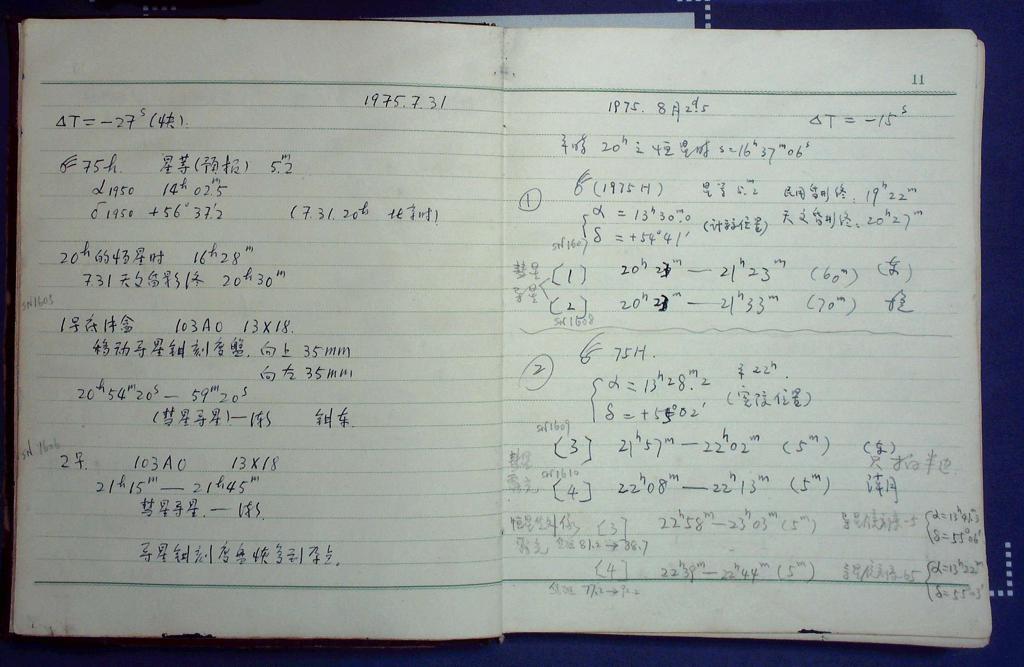 1975.7.31
ΔT = -27ˢ (快).
75h. 星等(预报) 5.ᵐ2
α1950 14ʰ 02.ᵐ5
δ1950 +56° 37.′2 (7.31.20ʰ 北京时)
20ʰ的恒星时 16ʰ28ᵐ
7.31 天文昏影终 20ʰ30ᵐ
SN1605
1号底片盒 103AO 13×18.
移动导星镜刻度盤. 向上 35mm
向左 35mm
20ʰ54ᵐ20ˢ — 59ᵐ20ˢ
(彗星导星)—
镜东
SN 1606
2号. 103AO 13×18
21ʰ15ᵐ — 21ʰ45ᵐ
彗星导星. —
导星镜刻度盤恢复到零点.
11
1975. 8月2ᵈ.5 ΔT = -15ˢ
20ʰ之恒星时 s=16ʰ37ᵐ06ˢ
① (1975H) 星等 5.ᵐ2 民用昏影终: 19ʰ22ᵐ
α = 13ʰ30ᵐ.0 (计算位置) 天文昏影终: 20ʰ27ᵐ
δ = +54°41′
SN1607
彗星 [1] 20ʰ23ᵐ — 21ʰ23ᵐ (60ᵐ) (东)
导星 [2] 20ʰ23ᵐ — 21ʰ33ᵐ (70ᵐ)
SN1608
② 75H.
α = 13ʰ28.ᵐ2 22ʰ.
δ = +55°02′ (实际位置)
SN1609
彗星 [3] 21ʰ57ᵐ — 22ʰ02ᵐ (5ᵐ) (东) 只拍半边
SN1610
[4] 22ʰ08ᵐ — 22ʰ13ᵐ (5ᵐ) 薄月
[3] 22ʰ58ᵐ — 23ʰ03ᵐ (5ᵐ) α=13ʰ41ᵐ3
81.2 → 38.7 δ=55°06′
[4] 22ʰ39ᵐ — 22ʰ44ᵐ (5ᵐ) α=13ʰ22ᵐ
δ=55°03′